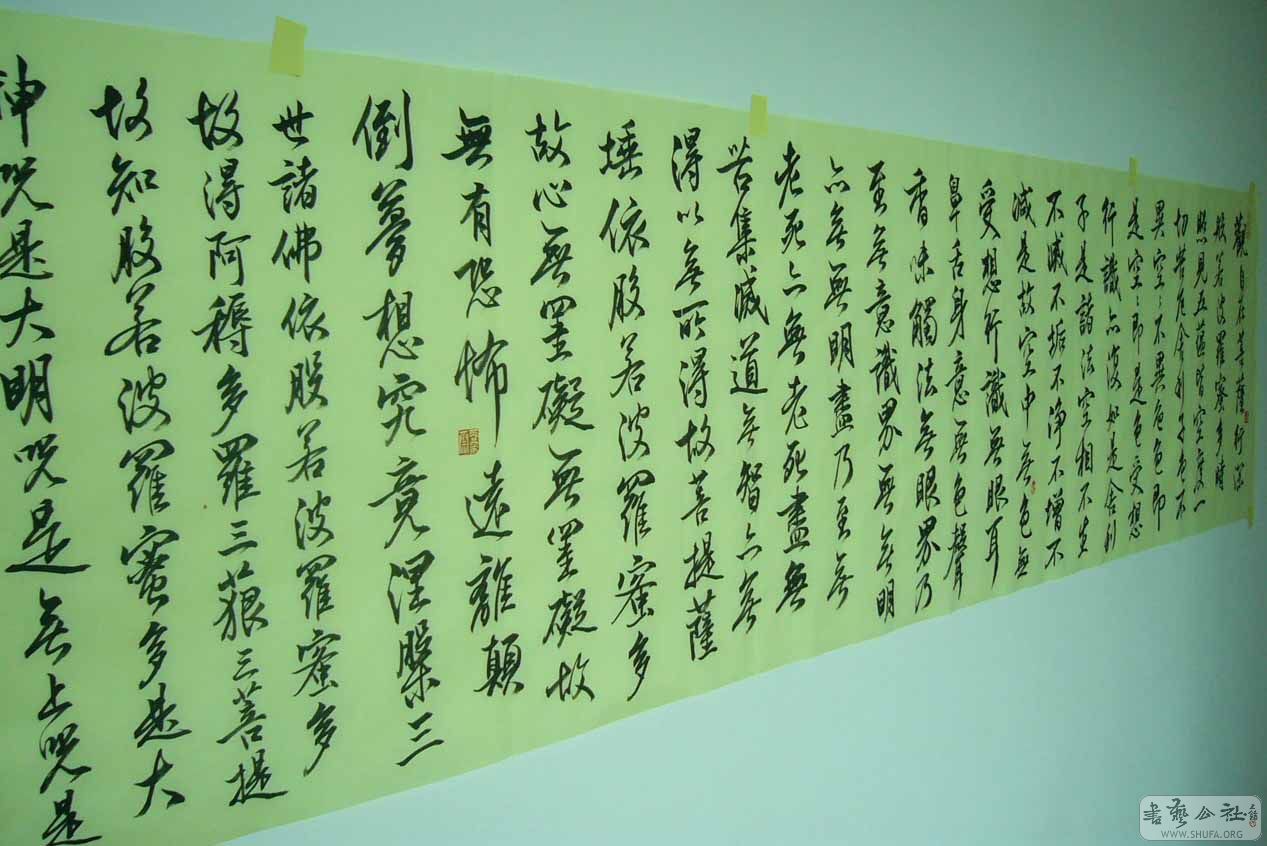 觀自在菩薩行深
般若波羅蜜多時
照見五蘊皆空度一
切苦厄舍利子色不
異空〻不異色色即
是空〻即是色受想
行識亦復如是舍利
子是諸法空相不生
不滅不垢不淨不增不
減是故空中無色無
受想行識無眼耳
鼻舌身意無色聲
香味觸法無眼界乃
至無意識界無無明
亦無無明盡乃至無
老死亦無老死盡無
苦集滅道無智亦無
得以無所得故菩提薩
埵依般若波羅蜜多
故心無罣礙無罣礙故
無有恐怖遠離顛
倒夢想究竟涅槃三
世諸佛依般若波羅蜜多
故得阿耨多羅三藐三菩提
故知般若波羅蜜多是大
神咒是大明咒是無上咒是
書藝公社
WWW.SHUFA.ORG